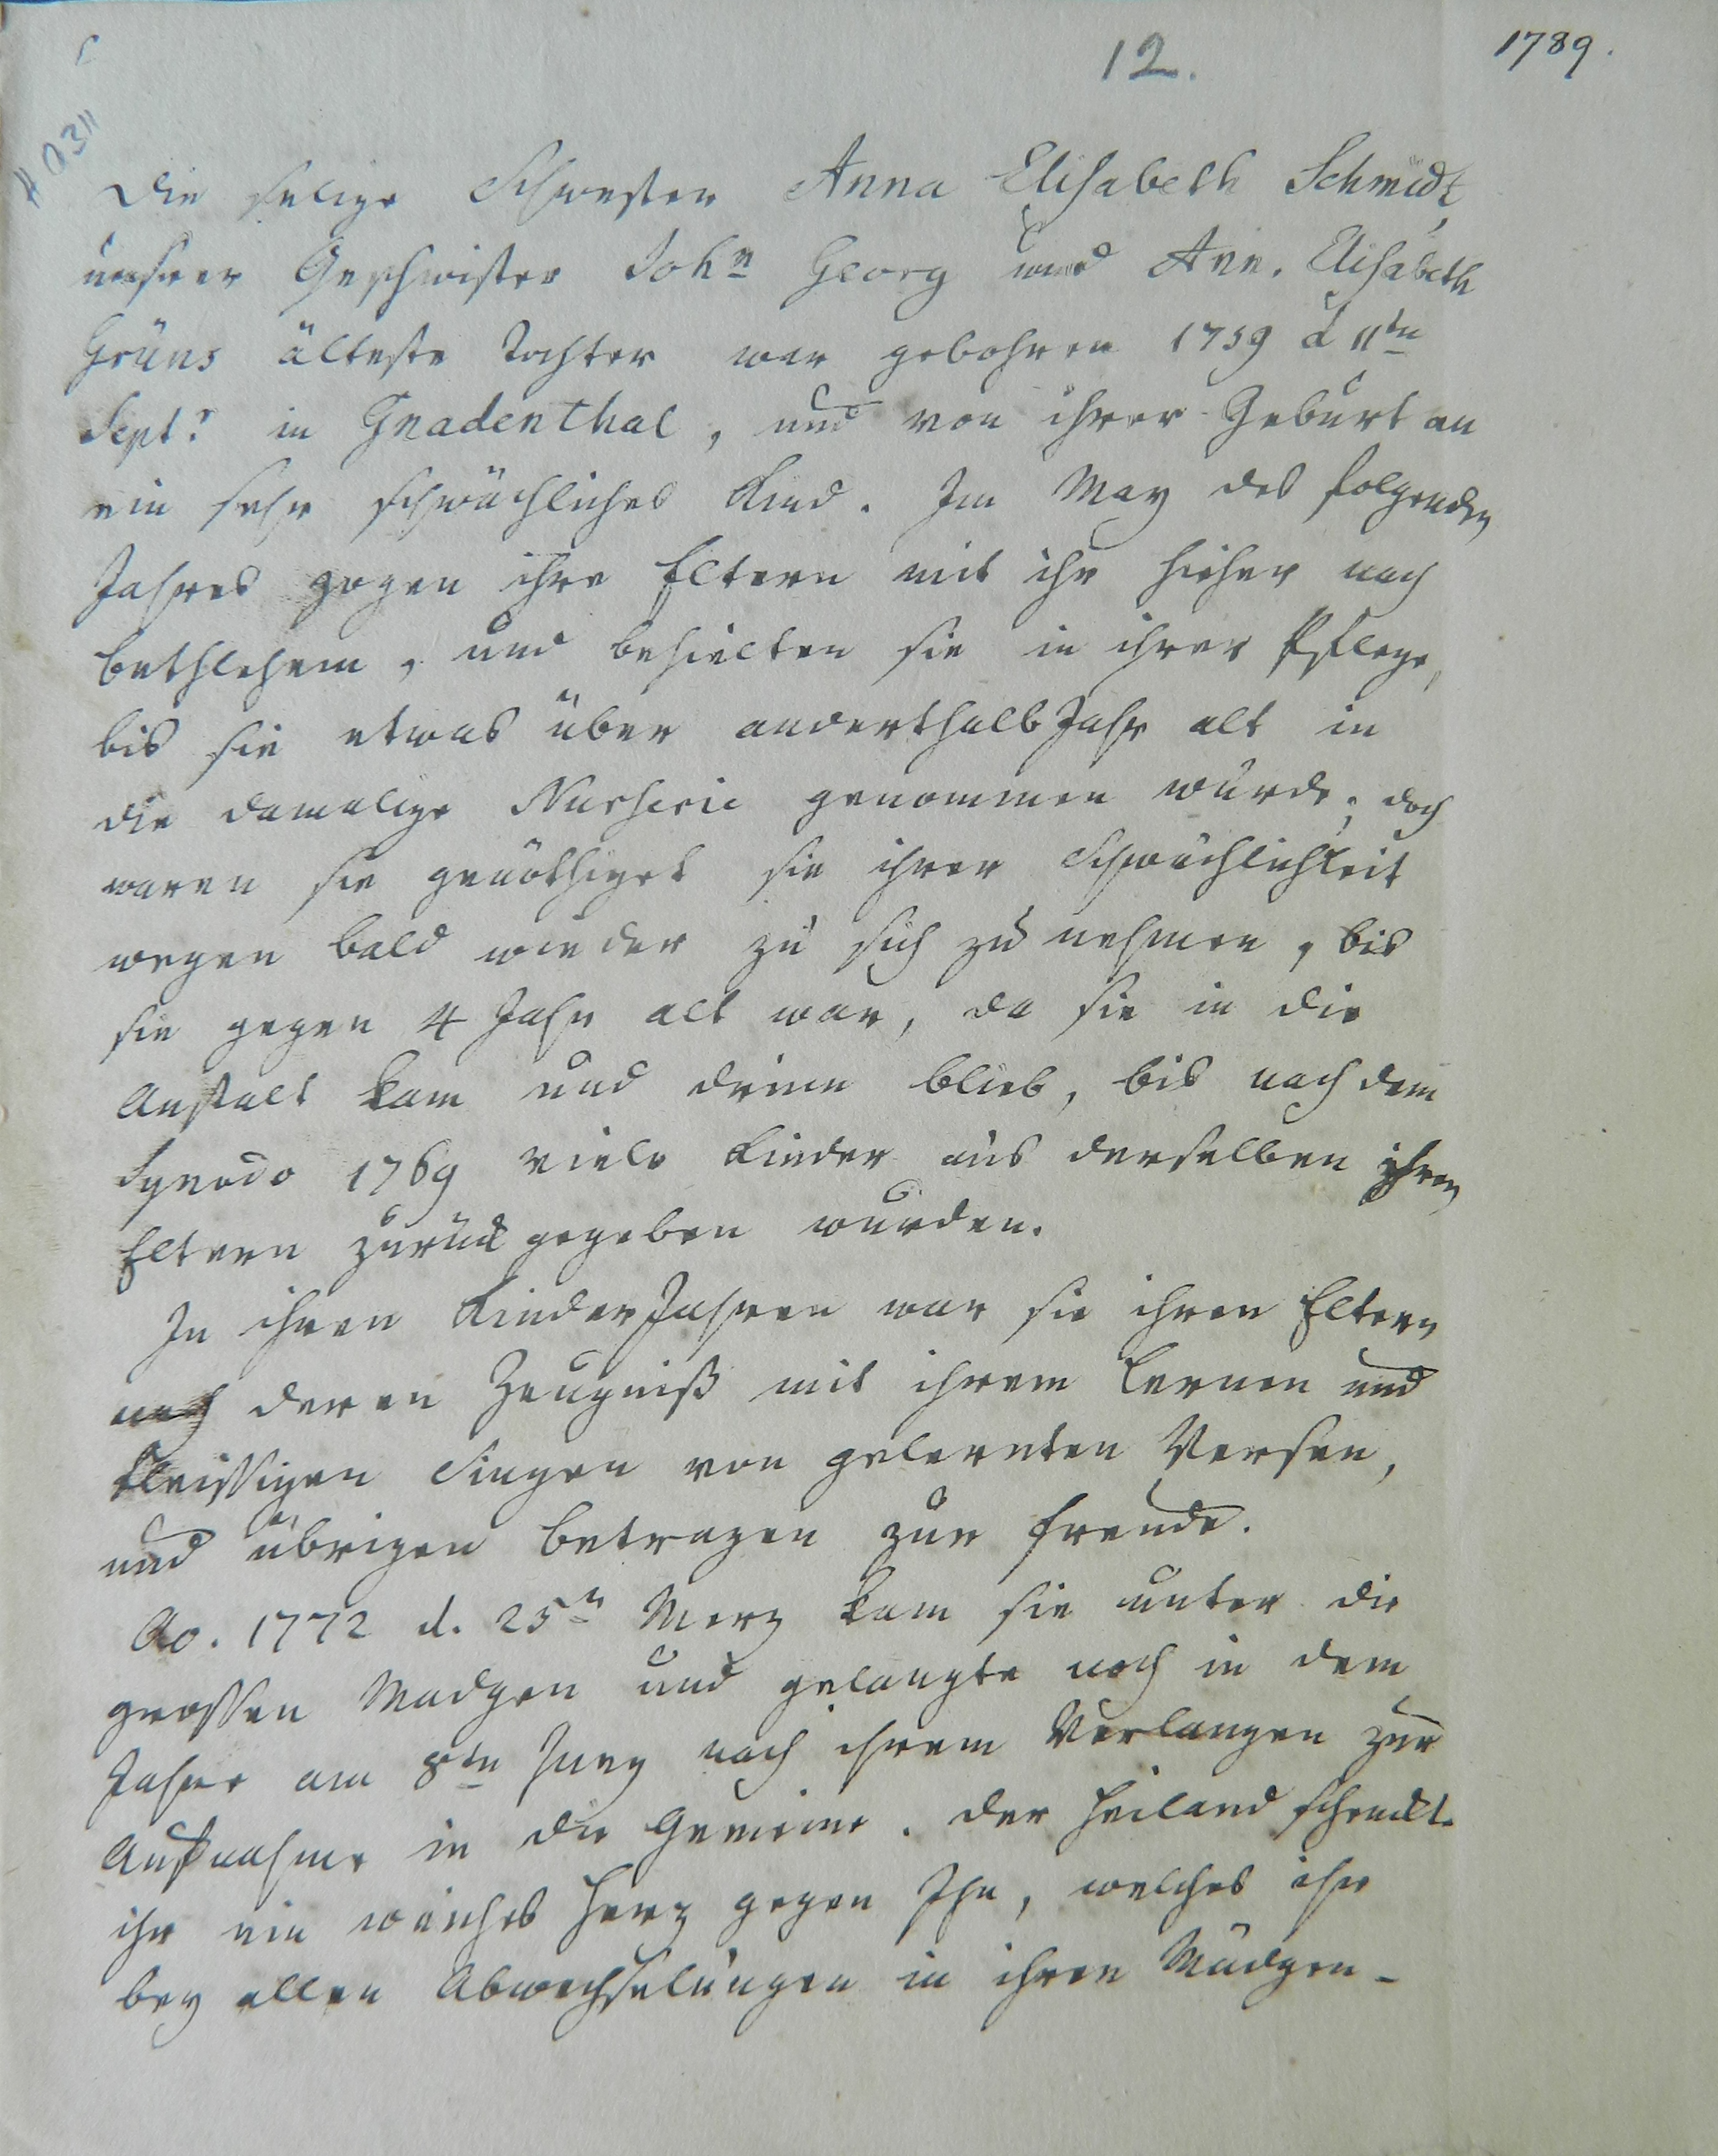 12.
1789.
Die selige Schwester Anna Elisabeth Schmidt,
unsrer Geschwister John Georg und Ann. Elisabeth
Grüns älteste Tochter war gebohren 1759 d 11tn
Septr. in Gnadenthal, und von ihrer Geburt an
ein sehr schwächliches Kind. Im May des folgenden
Jahres zogen ihre Eltern mit ihr hieher nach
Bethlehem, und behielten sie in ihrer Pflege,
bis sie etwas über anderthalb Jahr alt in
die damalige Nurserie genommen wurde; doch
waren sie genöthiget sie ihrer Schwächlichkeit
wegen bald wieder zu sich zu nehmen, bis
sie gegen 4 Jahr alt war, da sie in die
Anstalt kam und drinn blieb, bis nach dem
Synodo 1769 viele Kinder aus derselben ihren
Eltern zurück gegeben wurden.
In ihren Kinder Jahren war sie ihren Eltern
nach deren Zeugniß mit ihrem Lernen und
fleissigen Singen von gelernten Versen,
und übrigen Betragen zur Freude.
Ao. 1772 d. 25n Merz kam sie unter die
grossen Mädgen und gelangte noch in dem
Jahre am 8tn Juny nach ihrem Verlangen zur
Aufnahme in die Gemeine. Der Heiland schenkte
ihr ein weiches Herz gegen Ihn, welches ihr
bey allen Abwechselungen in ihren Mädgen-